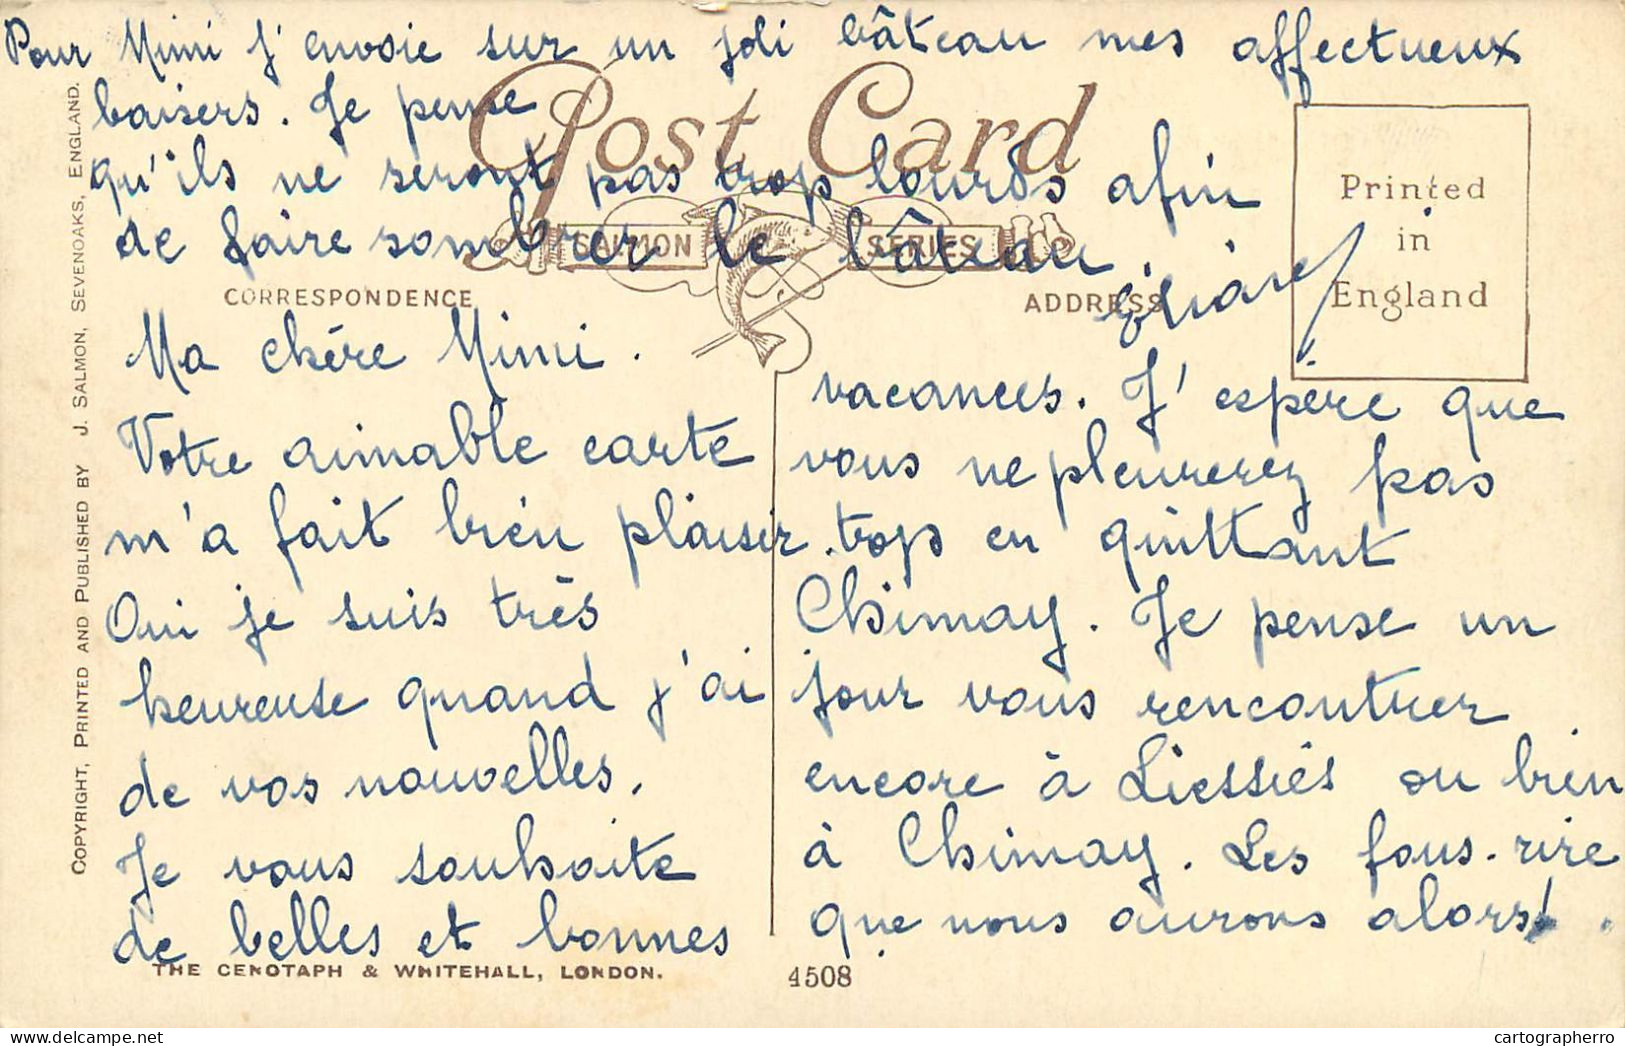 Pour Mimi j'envoie sur un joli bâteau mes affectueux
baisers. Je pense
qu'ils ne seront pas trop lourds afin
de faire sombrer le bâteau
Post Card
SALMON SERIES
CORRESPONDENCE
ADDRESS
Printed
in
England
COPYRIGHT, PRINTED AND PUBLISHED BY J. SALMON, SEVENOAKS, ENGLAND.
Ma chère Mimi.
Votre aimable carte
m'a fait bien plaisir.
Oui je suis très
heureuse quand j'ai
de vos nouvelles.
Je vous souhaite
de belles et bonnes
vacances. J'espère que
vous ne pleurerez pas
trop en quittant
Chimay. Je pense un
jour vous rencontrer
encore à Liessiés ou bien
à Chimay. Les fous-rire
que nous aurons alors!
THE CENOTAPH & WHITEHALL, LONDON.
4508
cartographerro